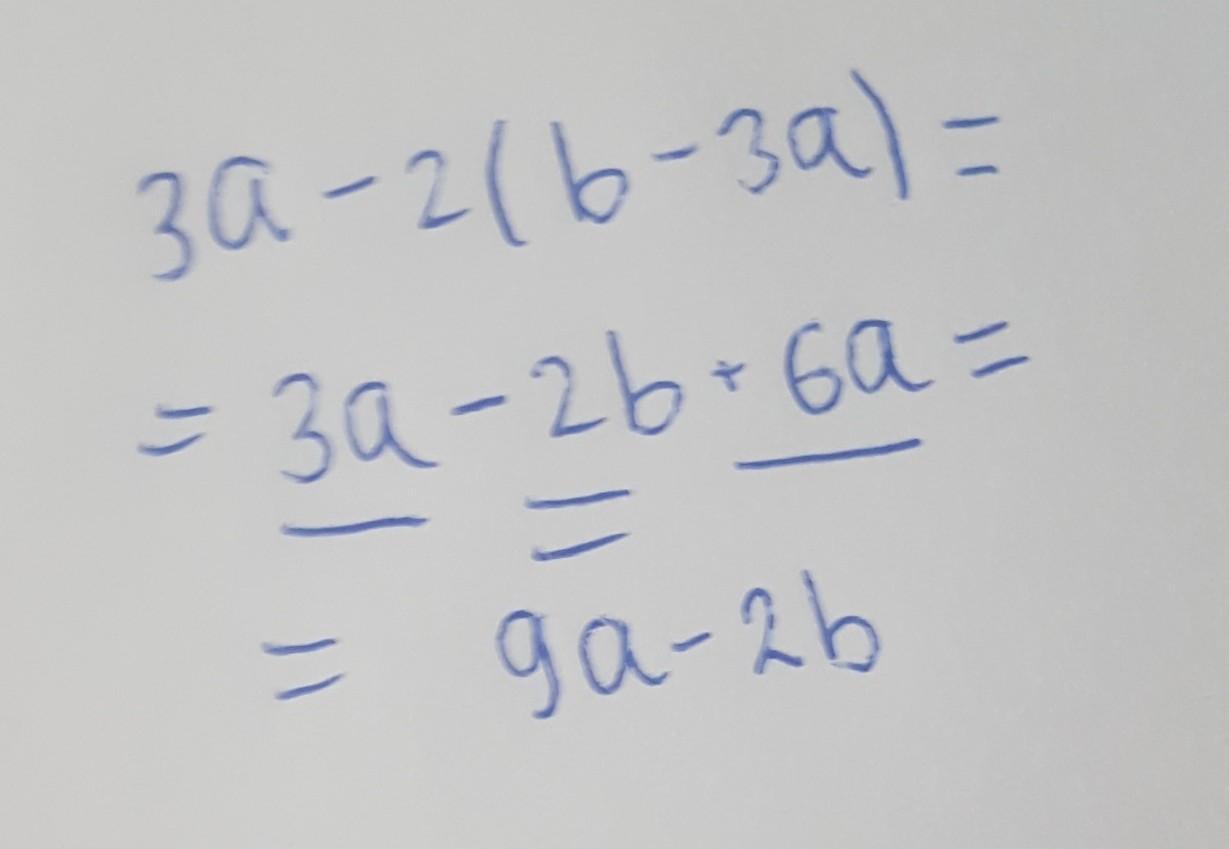 3a - 2(b - 3a) =
= 3a - 2b + 6a =
= 9a - 2b